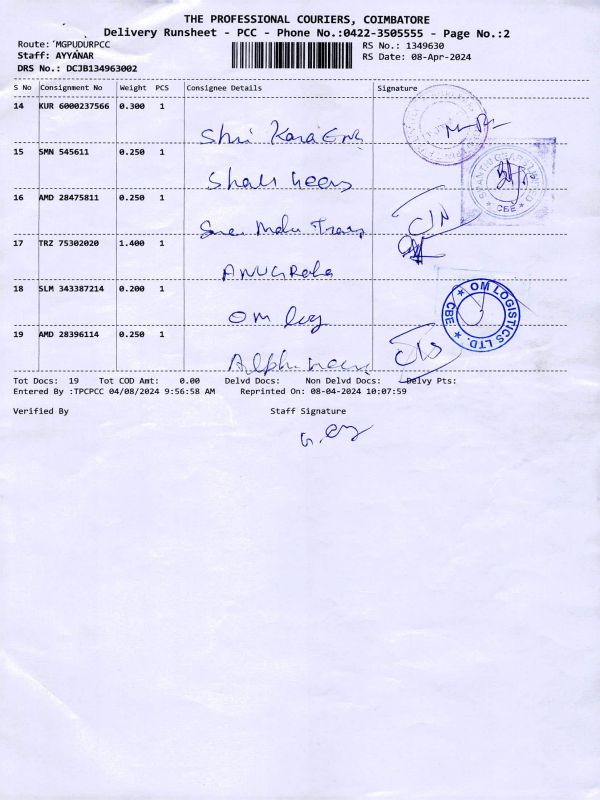 THE PROFESSIONAL COURIERS, COIMBATORE
Delivery Runsheet - PCC - Phone No.:0422-3505555 - Page No.:2
Route: MGPUDURPCC
RS No.: 1349630
Staff: AYYANAR
RS Date: 08-Apr-2024
DRS No.: DCJB134963002
S No Consignment No Weight PCS Consignee Details Signature
14 KUR 6000237566 0.300 1
Shri Kara Eng
15 SMN 545611 0.250 1
16 AMD 28475811 0.250 1
CBE
17 TRZ 75302020 1.400 1
ANUGRaha
18 SLM 343387214 0.200 1
OM log
OM LOGISTICS LTD. CBE
19 AMD 28396114 0.250 1
Alpha
Tot Docs: 19 Tot COD Amt: 0.00 Delvd Docs: Non Delvd Docs: Delvy Pts:
Entered By :TPCPCC 04/08/2024 9:56:58 AM Reprinted On: 08-04-2024 10:07:59
Verified By Staff Signature